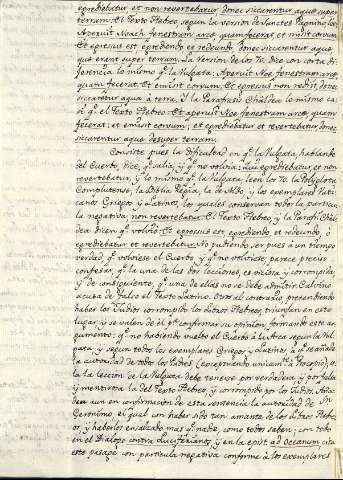 egrediebatur et non revertebatur donec siccarentur aquæ super
terram. El Texto Hebreo, segun la version de Santes Pagnino, lee:
Aperuit Noach fenestram arcæ, quam fecerat et misit corvum,
et egresus est, egrediendo et redeundo, donec siccarentur aquæ,
quæ erant super terram. La Version de los 70. dice con corta di-
ferencia lo mismo qe. la Vulgata: Aperuit Noe fenestram arcæ,
quam fecerat. Et emisit corvum, et egresus non rediit, donec
siccaretur aqua à terra. Y la Parafrasis Chaldea lo mismo ca-
si qe. el Texto Hebreo: Et aperuit Noe fenestram arcæ, quam
fecerat: et emisit corvum; et egrediebatur et revertebatur, donec
siccarentur aquæ desuper terram.
Consiste pues la dificultad en qe. la Vulgata hablando
del Cuervo, dice, qe. salia, y qe. no volvia: qui egrediebatur, et non
revertebatur, y lo mismo qe. la Vulgata leen los 70. la Polyglota
Complutense, la Biblia Regia, la de Sixto, y los exemplares Vati-
canos Griegos y Latinos, los quales conservan todos la particu-
la negativa, non revertebatur. El Texto Hebreo, y la Parafr. Chal-
dea dicen qe. volvió. Et egressus est, egrediendo, et redeundo, ò
egrediebatur et revertebatur. No pudiendo ser pues à un tiempo
verdad, qe. volviese el Cuervo y qe. no volviese, parece preciso
confesar, qe. la una de las dos lecciones, es viciosa y corrompida
y de consiguiente, qe. una de ellas no se debe admitir. Calvino
acusa de falso el Texto Latino. Otros al contrario, pretendiendo
haber los Judios corrompido los libros Hebreos, triunfan en este
lugar, y se valen de él pa. confirmar su opinion, formando este ar-
gumento: qe. no habiendo vuelto el Cuervo à la Arca segun la Vul-
gata, y segun todos los exemplares Griegos y Latinos, à qe. se añade
la autoridad de todos los Padres (exceptuando unicamte. à Procopio),
la leccion de la Vulgata debe tenerse por verdadera, y por falsa
y mentirosa la del Texto Hebreo, y corrompido por los Judios. Aña-
den aun en confirmacion de esta sentencia la autoridad de Sn.
Geronimo, el qual con haber sido tan amante de los libros Hebre-
os, y haberlos ensalzado mas qe. nadie, como todos saben, con todo
en el Dialogo contra Luciferianos, y en la epist. ad Oceanum cita
este pasage con particula negativa conforme à los exemplares